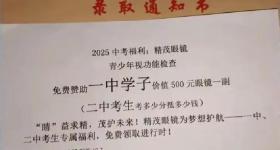 录取通知书
2025中考福利：精茂眼镜
青少年视功能检查
免费赞助一中学子价值500元眼镜一副
（二中考生考多少分抵多少钱）
“睛”益求精，茂护未来！精茂眼镜为梦想护航———一
、二中考生专属福利，免费领取进行时！